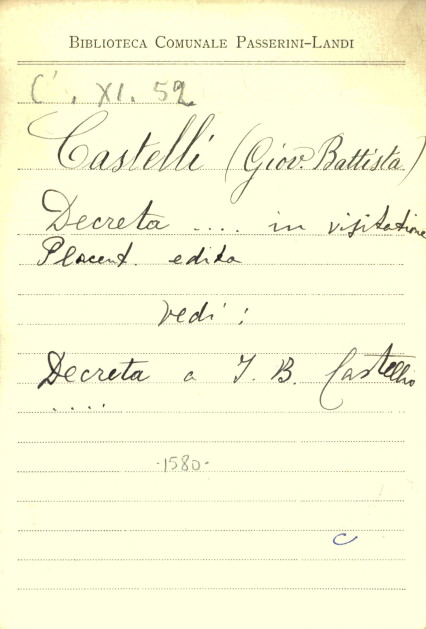 BIBLIOTECA COMUNALE PASSERINI-LANDI
C'. XI. 52
Castelli (Giov. Battista)
Decreta .... in visitatione
Placent. edita
vedi :
Decreta a J. B. Castello
....
-1580-
C